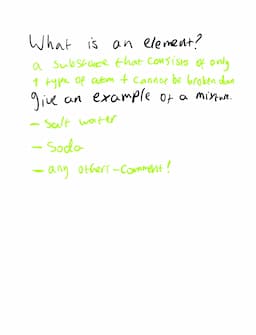 What is an element?
a substance that consists of only
1 type of atom + cannot be broken down
give an example of a mixture.
- Salt water
- Soda
- any others - Comment!